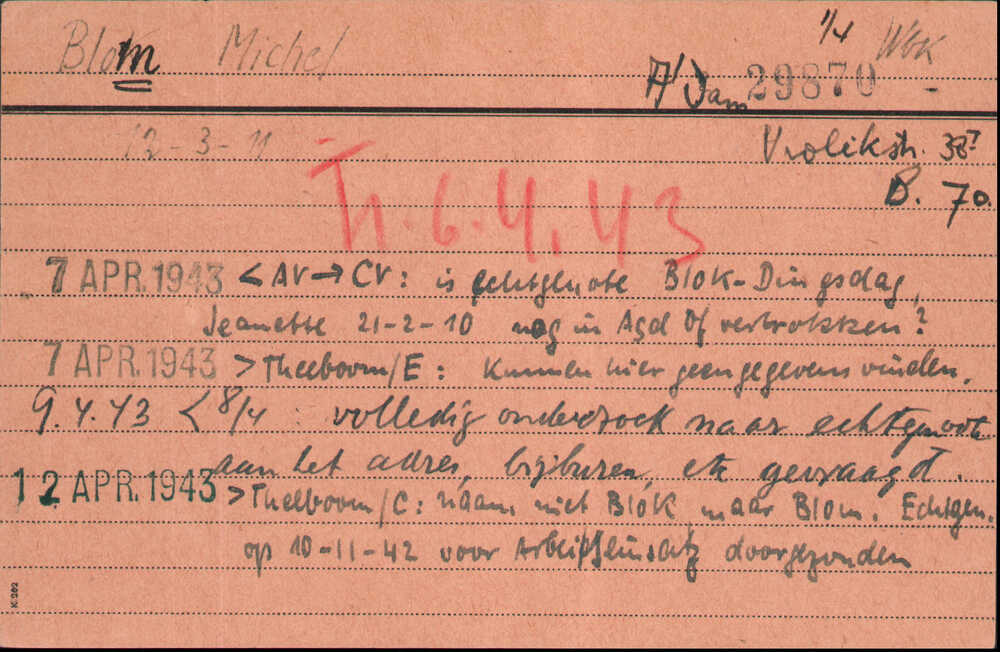 Blom Michel 1/4 Wbk
A'dam 29870 -
12-3-11 Vrolikstr. 38I
B. 70.
Tr. 6.4.43
7 APR. 1943 < AV → CV: is echtgenote Blok-Dingsdag,
Jeanette 21-2-10 nog in Asd of vertrokken?
7 APR. 1943 > Theeboom/E: Kunnen hier geen gegevens vinden.
9.4.43 < 8/4 : volledig onderzoek naar echtgenoote
aan het adres, bijburen, etc gevraagd.
12 APR. 1943 > Theeboom/C: naam niet Blok maar Blom. Echtgen.
op 10-11-42 voor Arbeitseinsatz doorgezonden
K 202